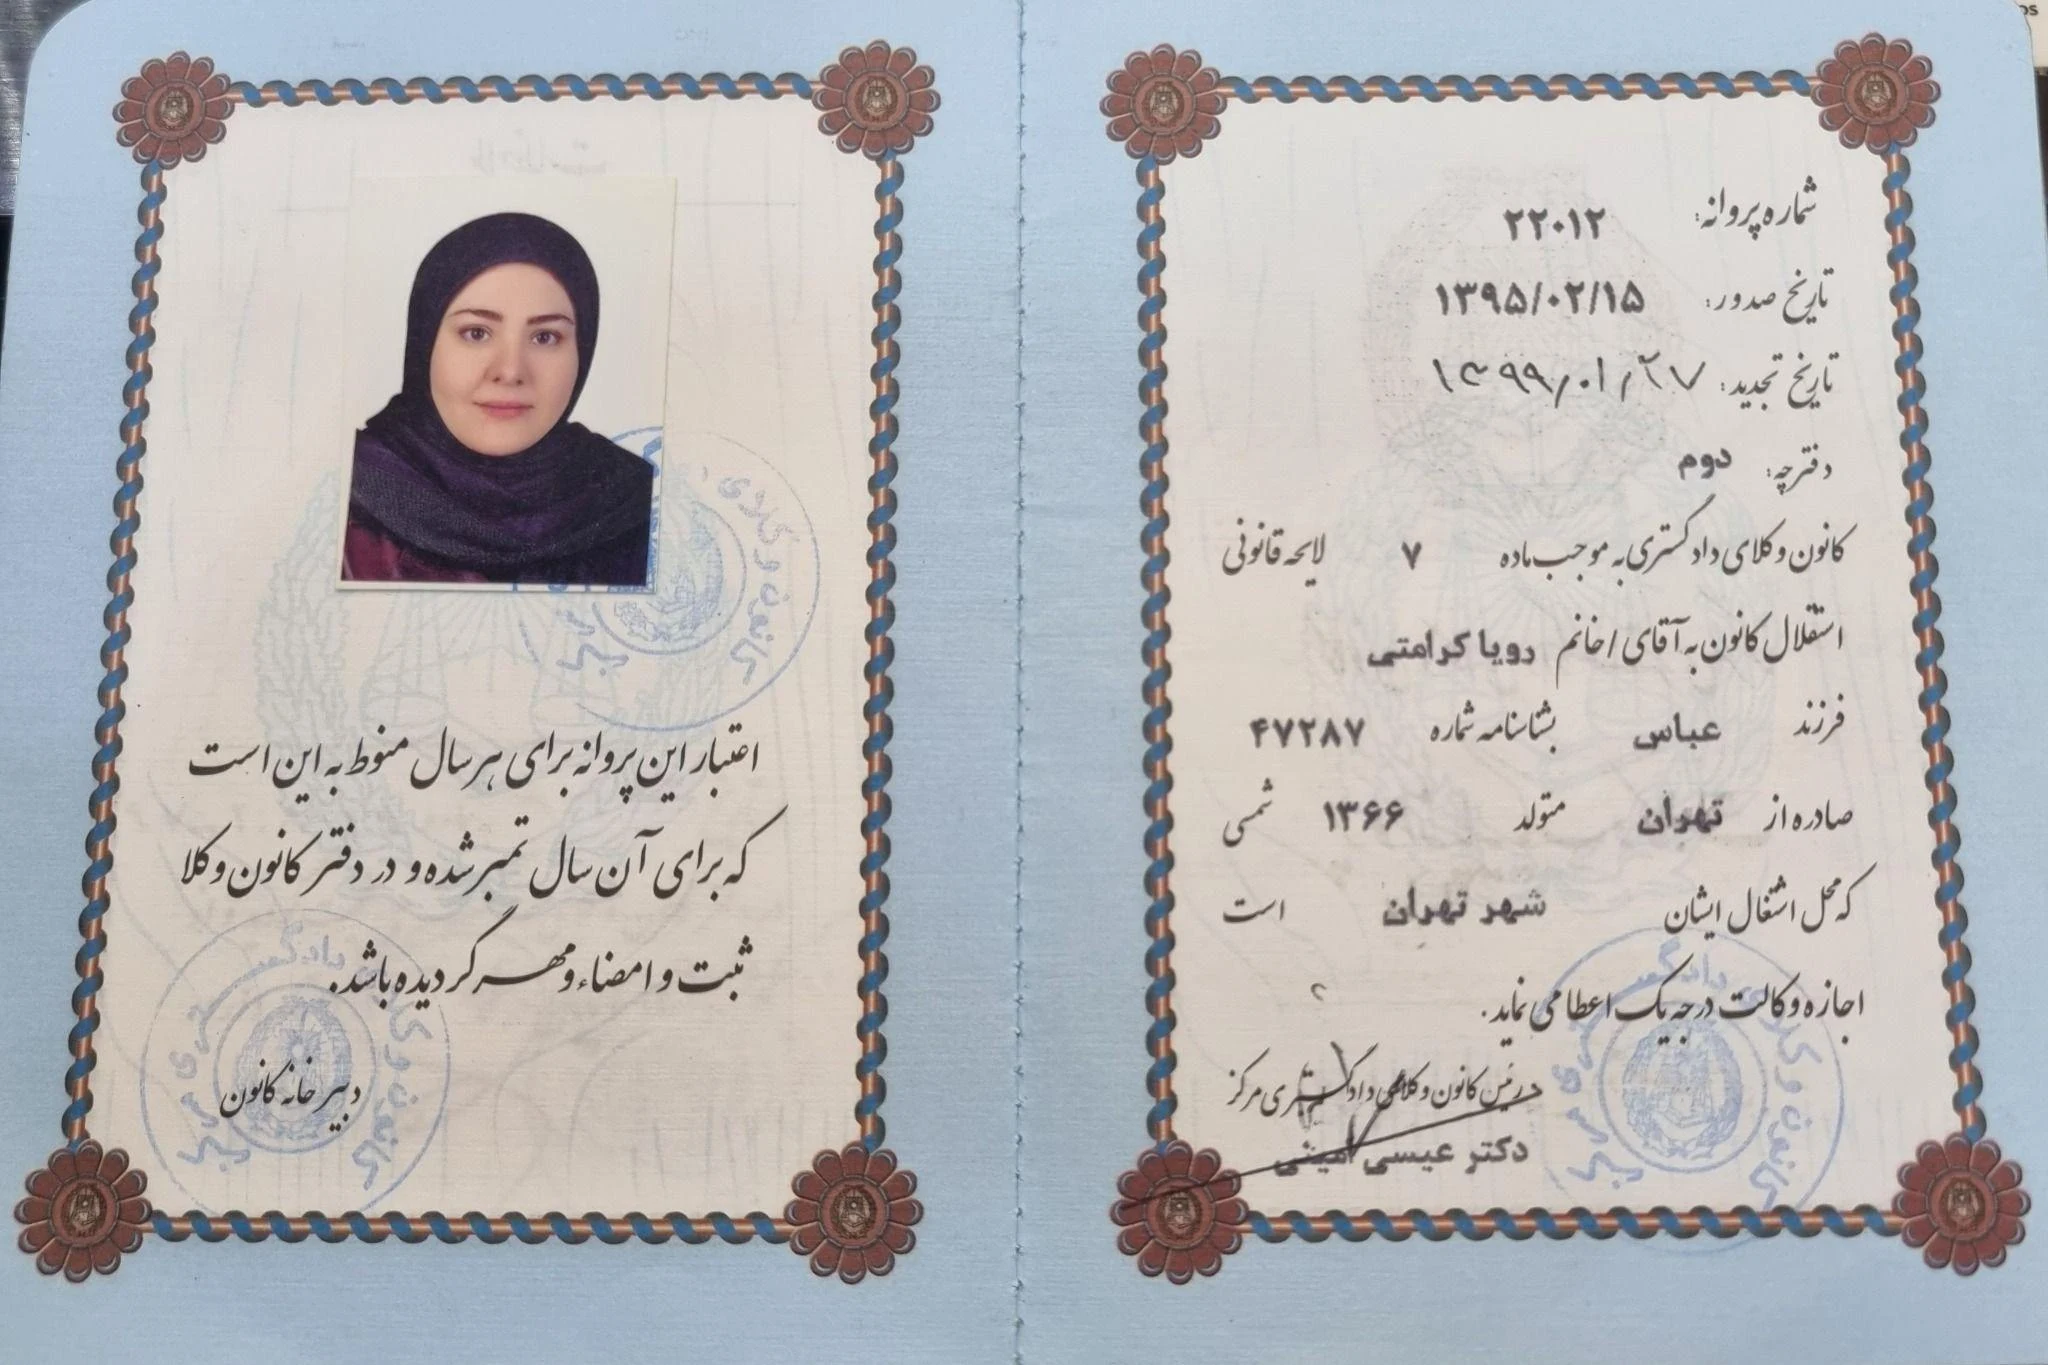 شماره پروانه: ۲۲۰۱۲
تاریخ صدور: ۱۳۹۵/۰۲/۱۵
تاریخ تجدید: ۱۳۹۹/۰۱/۲۷
دفترچه: دوم
کانون وکلای دادگستری به موجب ماده ۷ لایحه قانونی
استقلال کانون به آقای / خانم رویا کرامتی
فرزند عباس بشناسنامه شماره ۴۷۲۸۷
صادره از تهران متولد ۱۳۶۶ شمسی
که محل اشتغال ایشان شهر تهران است
اجازه وکالت درجه یک اعطا می نماید.
رئیس کانون وکلای دادگستری مرکز
دکتر عیسی امینی
کانون وکلای دادگستری
اعتبار این پروانه برای هر سال منوط به این است
که برای آن سال تمبر شده و در دفتر کانون وکلا
ثبت و امضاء و مهر گردیده باشد.
دبیرخانه کانون
کانون وکلای دادگستری
کانون وکلای